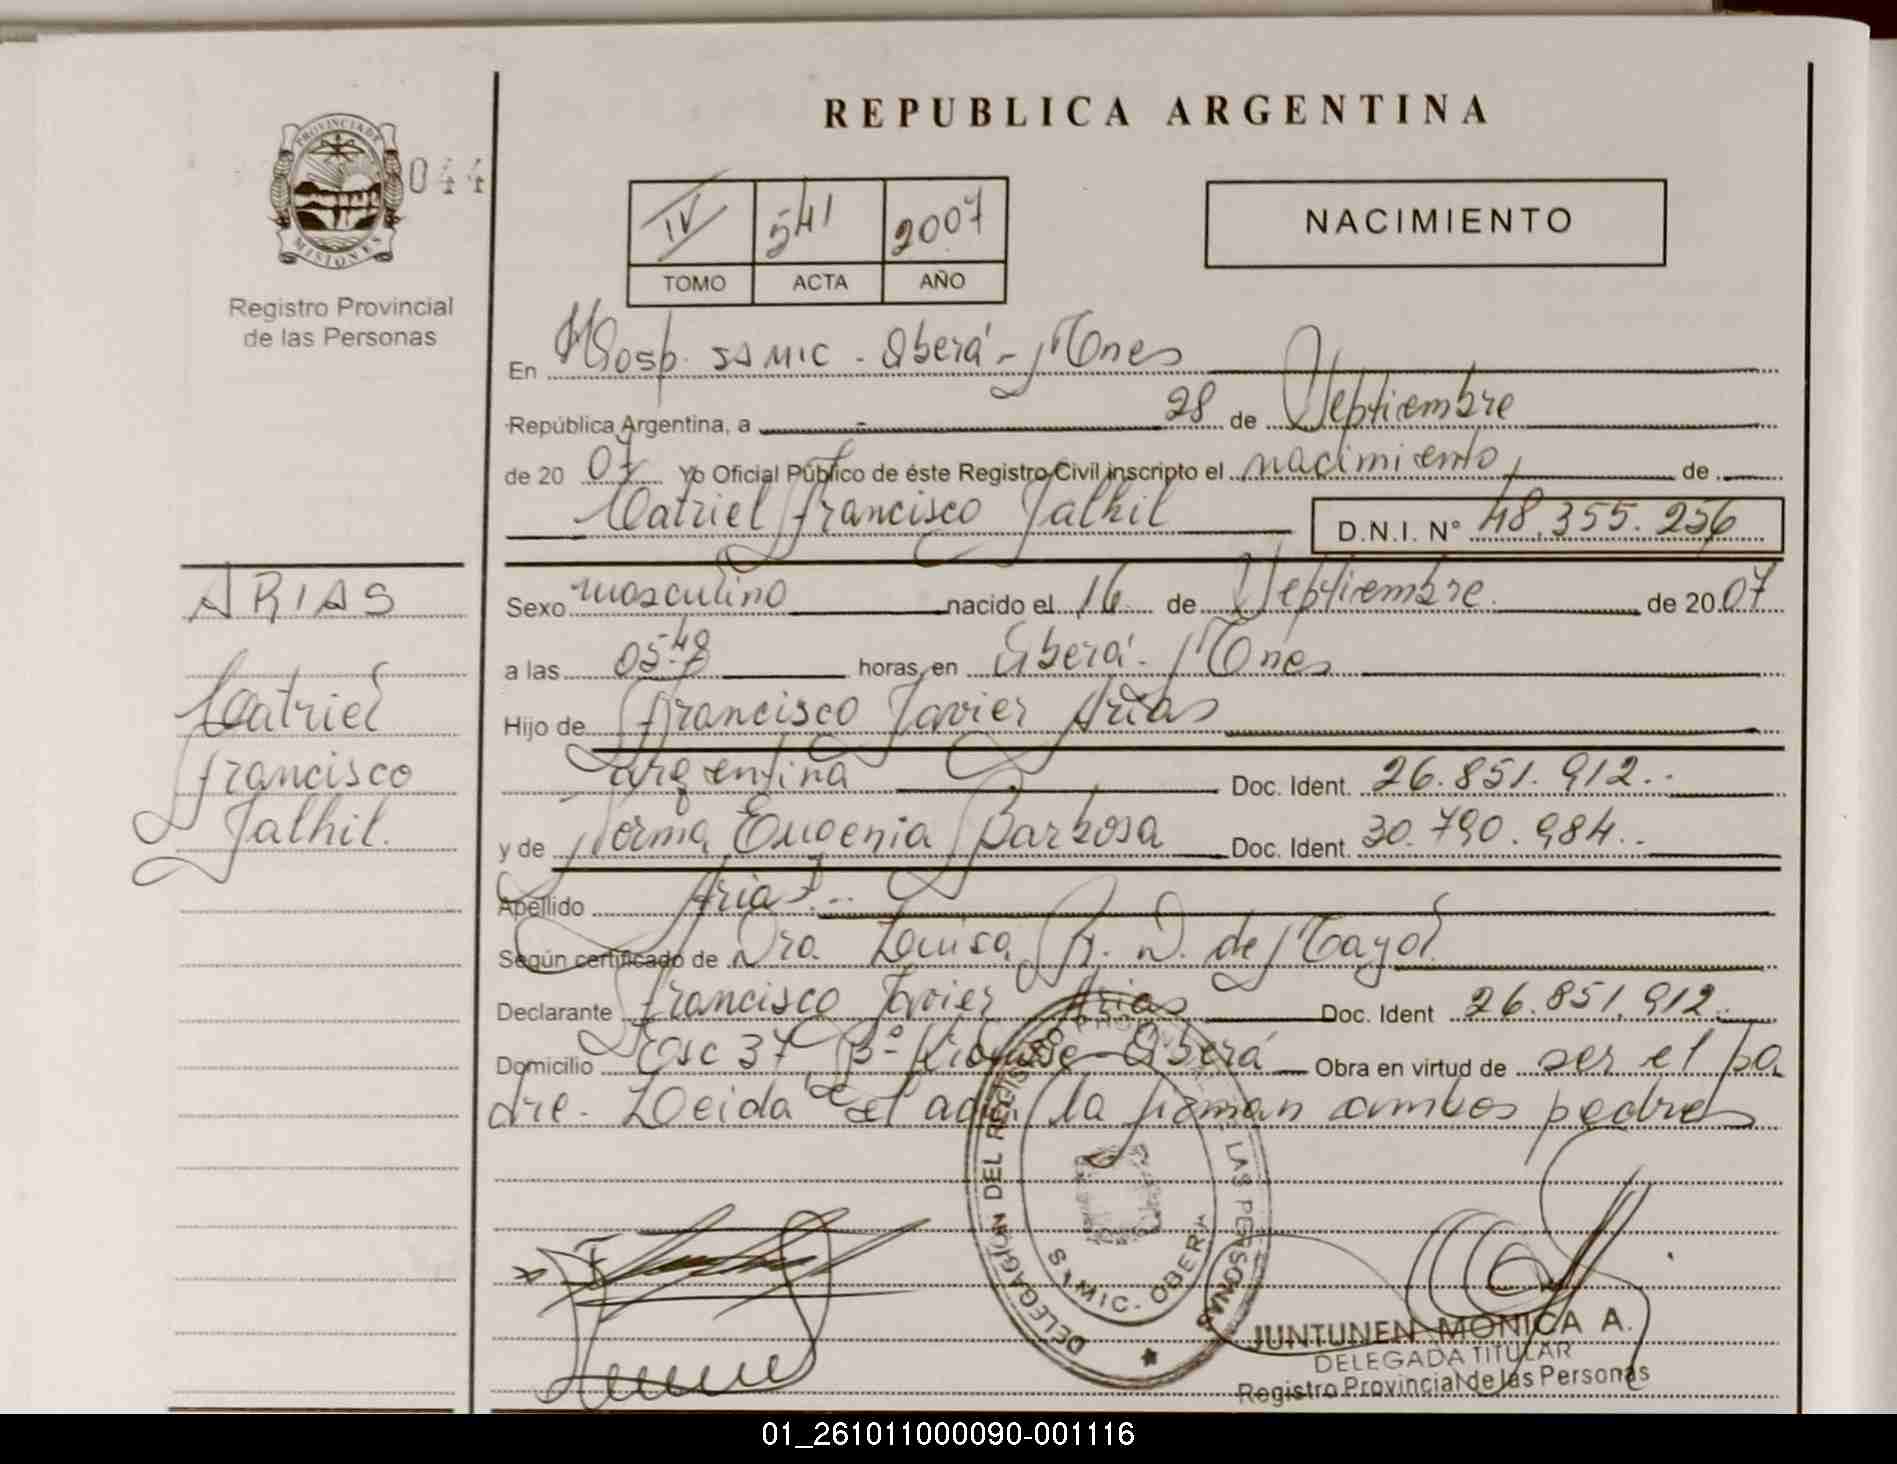 REPUBLICA ARGENTINA
PROVINCIA DE
MISIONES
044
Registro Provincial
de las Personas
IV 541 2007
TOMO ACTA AÑO
NACIMIENTO
En Hosp. SAMIC - Oberá - Mnes
República Argentina, a 28 de Septiembre
de 20 07 Yo Oficial Público de éste Registro Civil inscripto el nacimiento de
Catriel Francisco Jalhil D.N.I. Nº 48.355.256
Sexo masculino nacido el 16 de Septiembre de 20 07
a las 05:48 horas, en Oberá - Mnes
Hijo de Francisco Javier Arias
argentina Doc. Ident. 26.851.912.-
y de Norma Eugenia Barbosa Doc. Ident. 30.790.984.-
Apellido Arias.-
Según certificado de Dra. Louisa R. D. de Mayol
Declarante Francisco Javier Arias Doc. Ident 26.851.912.-
Domicilio Esc 37 Bº Krause - Oberá Obra en virtud de ser el pa
dre. Leida el acta la firman ambos padres
ARIAS
Catriel
Francisco
Jalhil.
DELEGACIÓN DEL REGISTRO PROVINCIAL DE LAS PERSONAS
SAMIC - OBERA
JUNTUNEN MONICA A.
DELEGADA TITULAR
Registro Provincial de las Personas
01_261011000090-001116